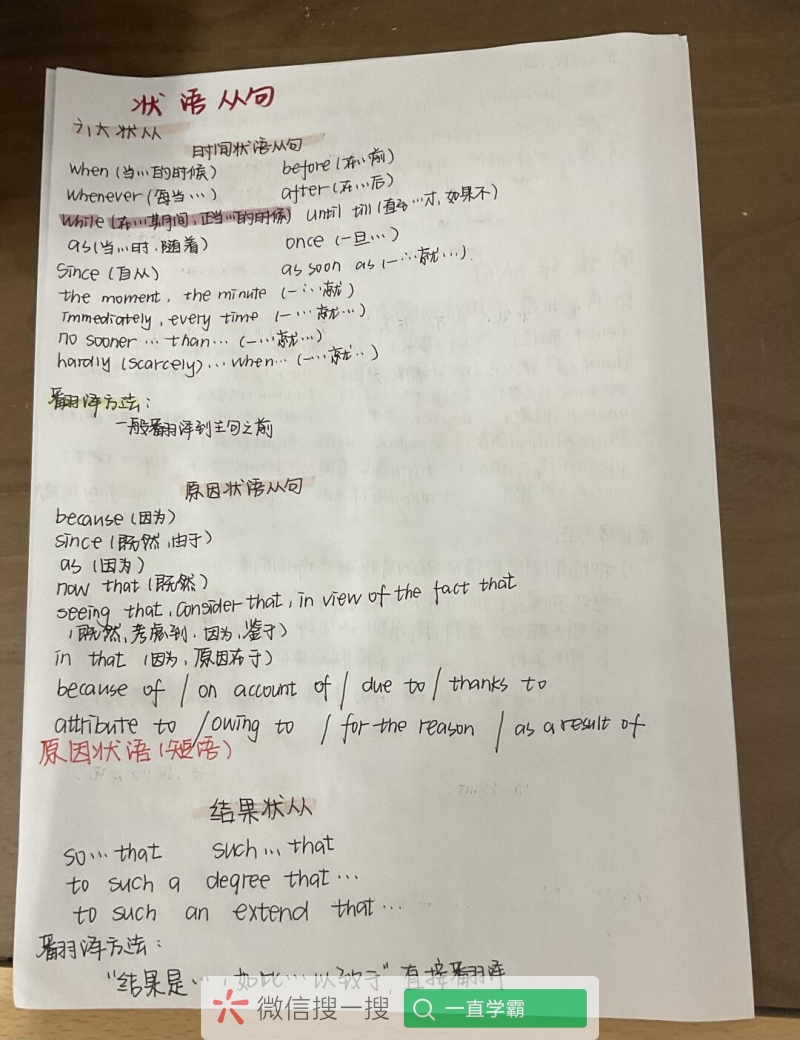 状语从句
六大状从
时间状语从句
when (当…的时候) before (在…前)
whenever (每当…) after (在…后)
while (在…期间, 正当…的时候) until till (直到…才, 如果不)
as (当…时, 随着) once (一旦…)
since (自从) as soon as (一…就…)
the moment, the minute (一…就)
immediately, every time (一…就…)
no sooner … than… (一…就…)
hardly (scarcely) … when… (一…就…)
翻译方法:
一般翻译到主句之前
原因状语从句
because (因为)
since (既然, 由于)
as (因为)
now that (既然)
seeing that, consider that, in view of the fact that
(既然, 考虑到, 因为, 鉴于)
in that (因为, 原因在于)
because of / on account of / due to / thanks to
attribute to / owing to / for the reason / as a result of
原因状语 (短语)
结果状从
so … that such … that
to such a degree that …
to such an extend that …
翻译方法:
"结果是…, 如此…以致于" 直接翻译
微信搜一搜 一直学霸